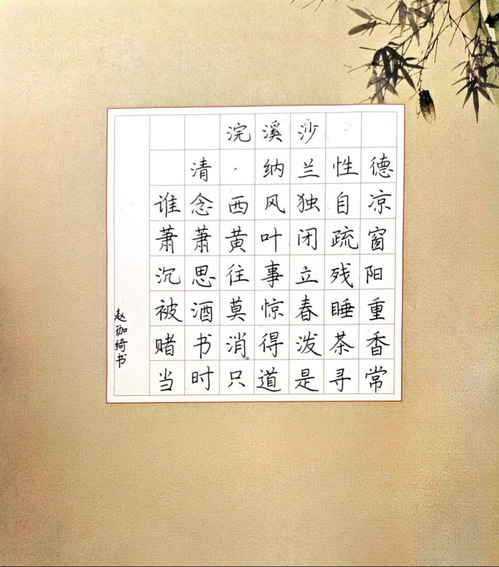 浣溪沙
清·纳兰性德
谁念西风独自凉
萧萧黄叶闭疏窗
沉思往事立残阳
被酒莫惊春睡重
赌书消得泼茶香
当时只道是寻常
赵珈绮书